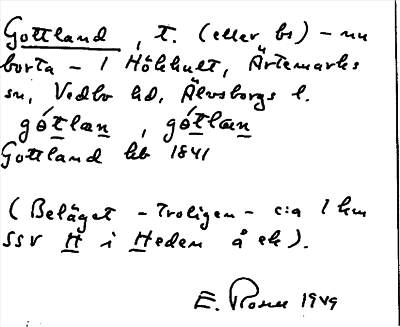 Gottland, t. (eller bs) - nu
borta - i Hökhult, Ärtemarks
sn, Vedbo hd, Älvsborgs l.
gótlan, gótlæn
Gottland hb 1841
(Beläget - troligen - c:a 1 km
SSV H i Heden å ek).
E. 1949